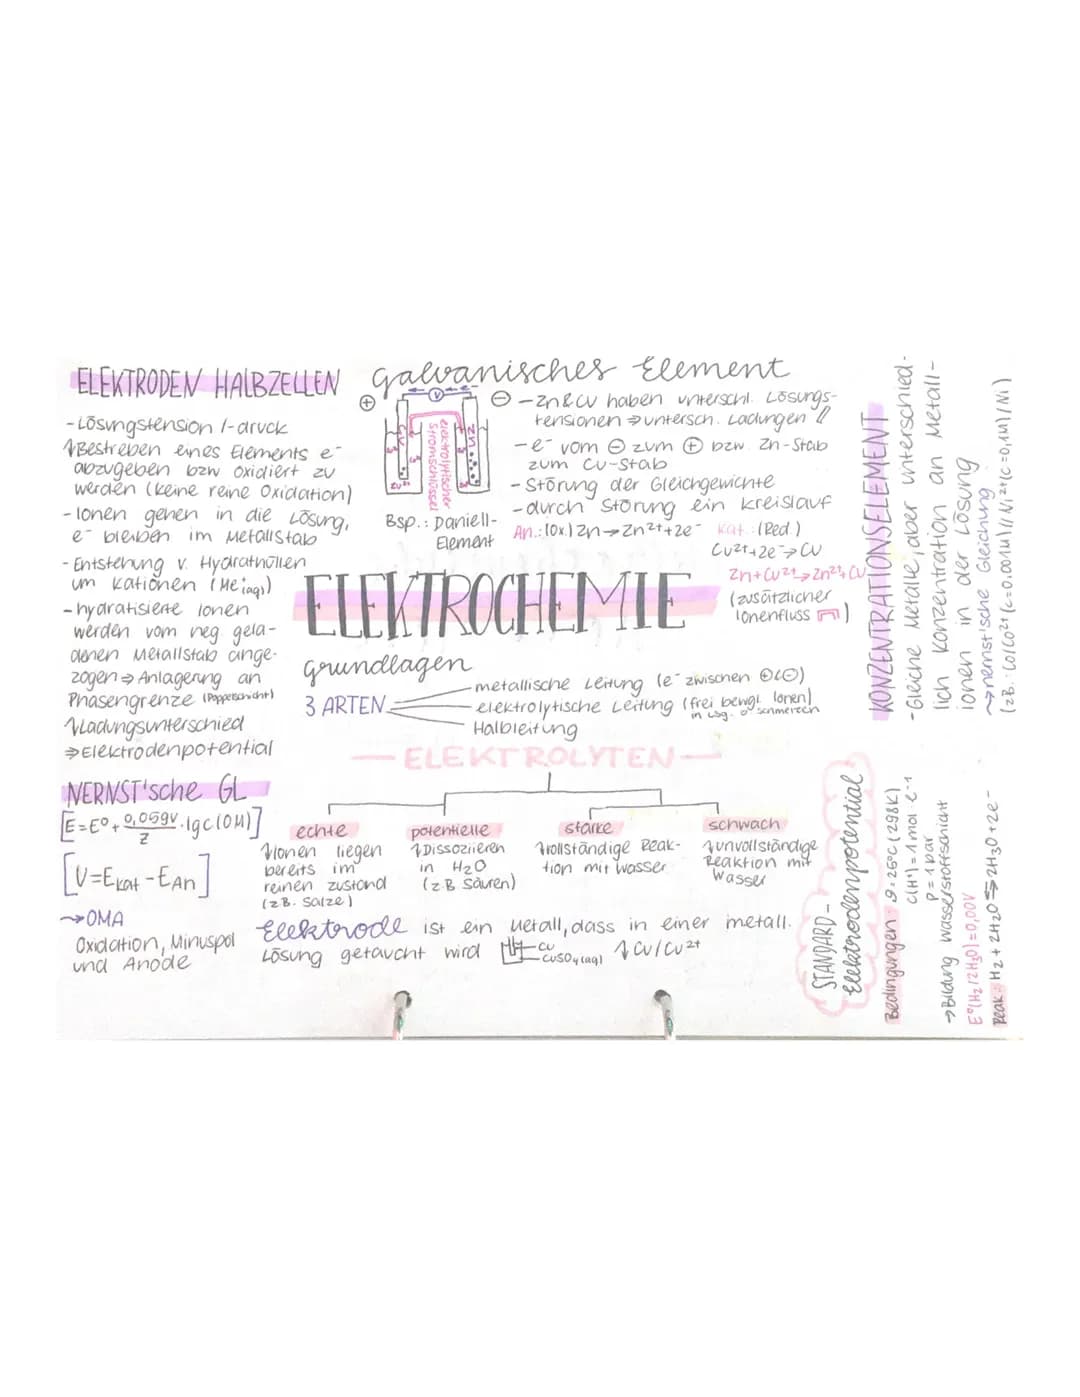 ELEKTRODEN HALBZELLEN
- Lösungstension /-druck
↳Bestreben eines Elements e⁻
abzugeben bzw oxidiert zu
werden (keine reine Oxidation)
- Ionen gehen in die Lösung,
e⁻ bleiben im Metallstab
- Entstehung v. Hydrathüllen
um Kationen (Me⁺(aq))
- hydratisierte Ionen
werden vom neg gela-
denen Metallstab ange-
zogen ⇒ Anlagerung an
Phasengrenze (Doppelschicht)
↳Ladungsunterschied
⇒ Elektrodenpotential
NERNST'sche GL
[E=E⁰+ 0,059V/z · lgc(OM)]
[U=EKat - EAn]
⇝ OMA
Oxidation, Minuspol
und Anode
galvanisches Element
⊕ V ⊖
Cu
elektrolytischer
Stromschlüssel
Zn
Bsp.: Daniell-
Element
- Zn&Cu haben unterschl. Lösungs-
tensionen ⇒ untersch. Ladungen
- e⁻ vom ⊖ zum ⊕ bzw. Zn-Stab
zum Cu-Stab
- Störung der Gleichgewichte
- durch Störung ein Kreislauf
An.: (Ox.) Zn → Zn²⁺+2e⁻ Kat.: (Red.)
Cu²⁺+2e⁻→ Cu
Zn+Cu²⁺→Zn²⁺+Cu
(zusätzlicher
Ionenfluss)
ELEKTROCHEMIE
grundlagen
3 ARTEN
metallische Leitung (e⁻ zwischen ⊕&⊖)
elektrolytische Leitung (frei bewgl. Ionen)
in Lsg. o. Schmelzen
Halbleitung
— ELEKTROLYTEN —
echte
↳Ionen liegen
bereits im
reinen zustand
(z.B. Salze)
potentielle
↳Dissoziieren
in H₂O
(z.B. Säuren)
starke
↳vollständige Reak-
tion mit Wasser
schwach
↳unvollständige
Reaktion mit
Wasser
Elektrode ist ein Metall, dass in einer metall.
Lösung getaucht wird Cu
CuSO₄(aq) ↳ Cu/Cu²⁺
KONZENTRATIONSELEMENT
- Gleiche Metalle, aber unterschied-
lich Konzentration an Metall-
ionen in der Lösung
⇝ nernst'sche Gleichung
(z.B.: Co/Co²⁺(c=0.001M)//Ni²⁺(c=0,1M)/Ni)
STANDARD-
Elektrodenpotential
Bedingungen: ϑ=25°C (298K)
c(H⁺)=1mol·l⁻¹
p=1bar
→ Bildung Wasserstoffschicht
E⁰(H₂/2H₃O)=0,00V
Reak.: H₂+2H₂O ⇌ 2H₃O+2e⁻